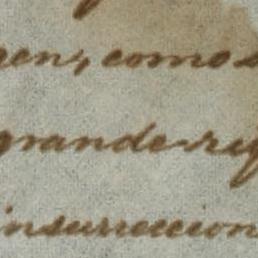 gen, como s
grande rig
insurreccion